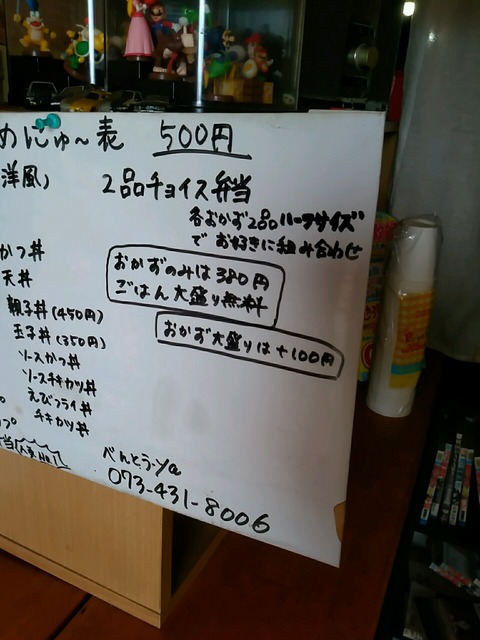 めにゅ〜表 500円
洋風)
2品チョイス弁当
各おかず2品ハーフサイズ
で お好きに組み合わせ
おかずのみは380円
ごはん大盛り無料
おかず大盛りは+100円
かつ丼
天丼
親子丼(450円)
玉子丼(350円)
ソースかつ丼
ソースチキカツ丼
えびフライ丼
チキカツ丼
べんとう-Ya
073-431-8006